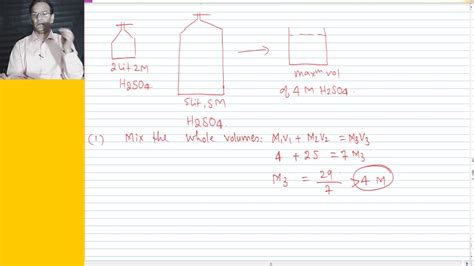 2 lit 2M
H₂SO₄
5 lit, 5M
H₂SO₄
maxᵐ vol
of 4 M H₂SO₄
(1) Mix the whole volumes: M₁V₁ + M₂V₂ = M₃V₃
4 + 25 = 7 M₃
M₃ = 29/7 > 4 M